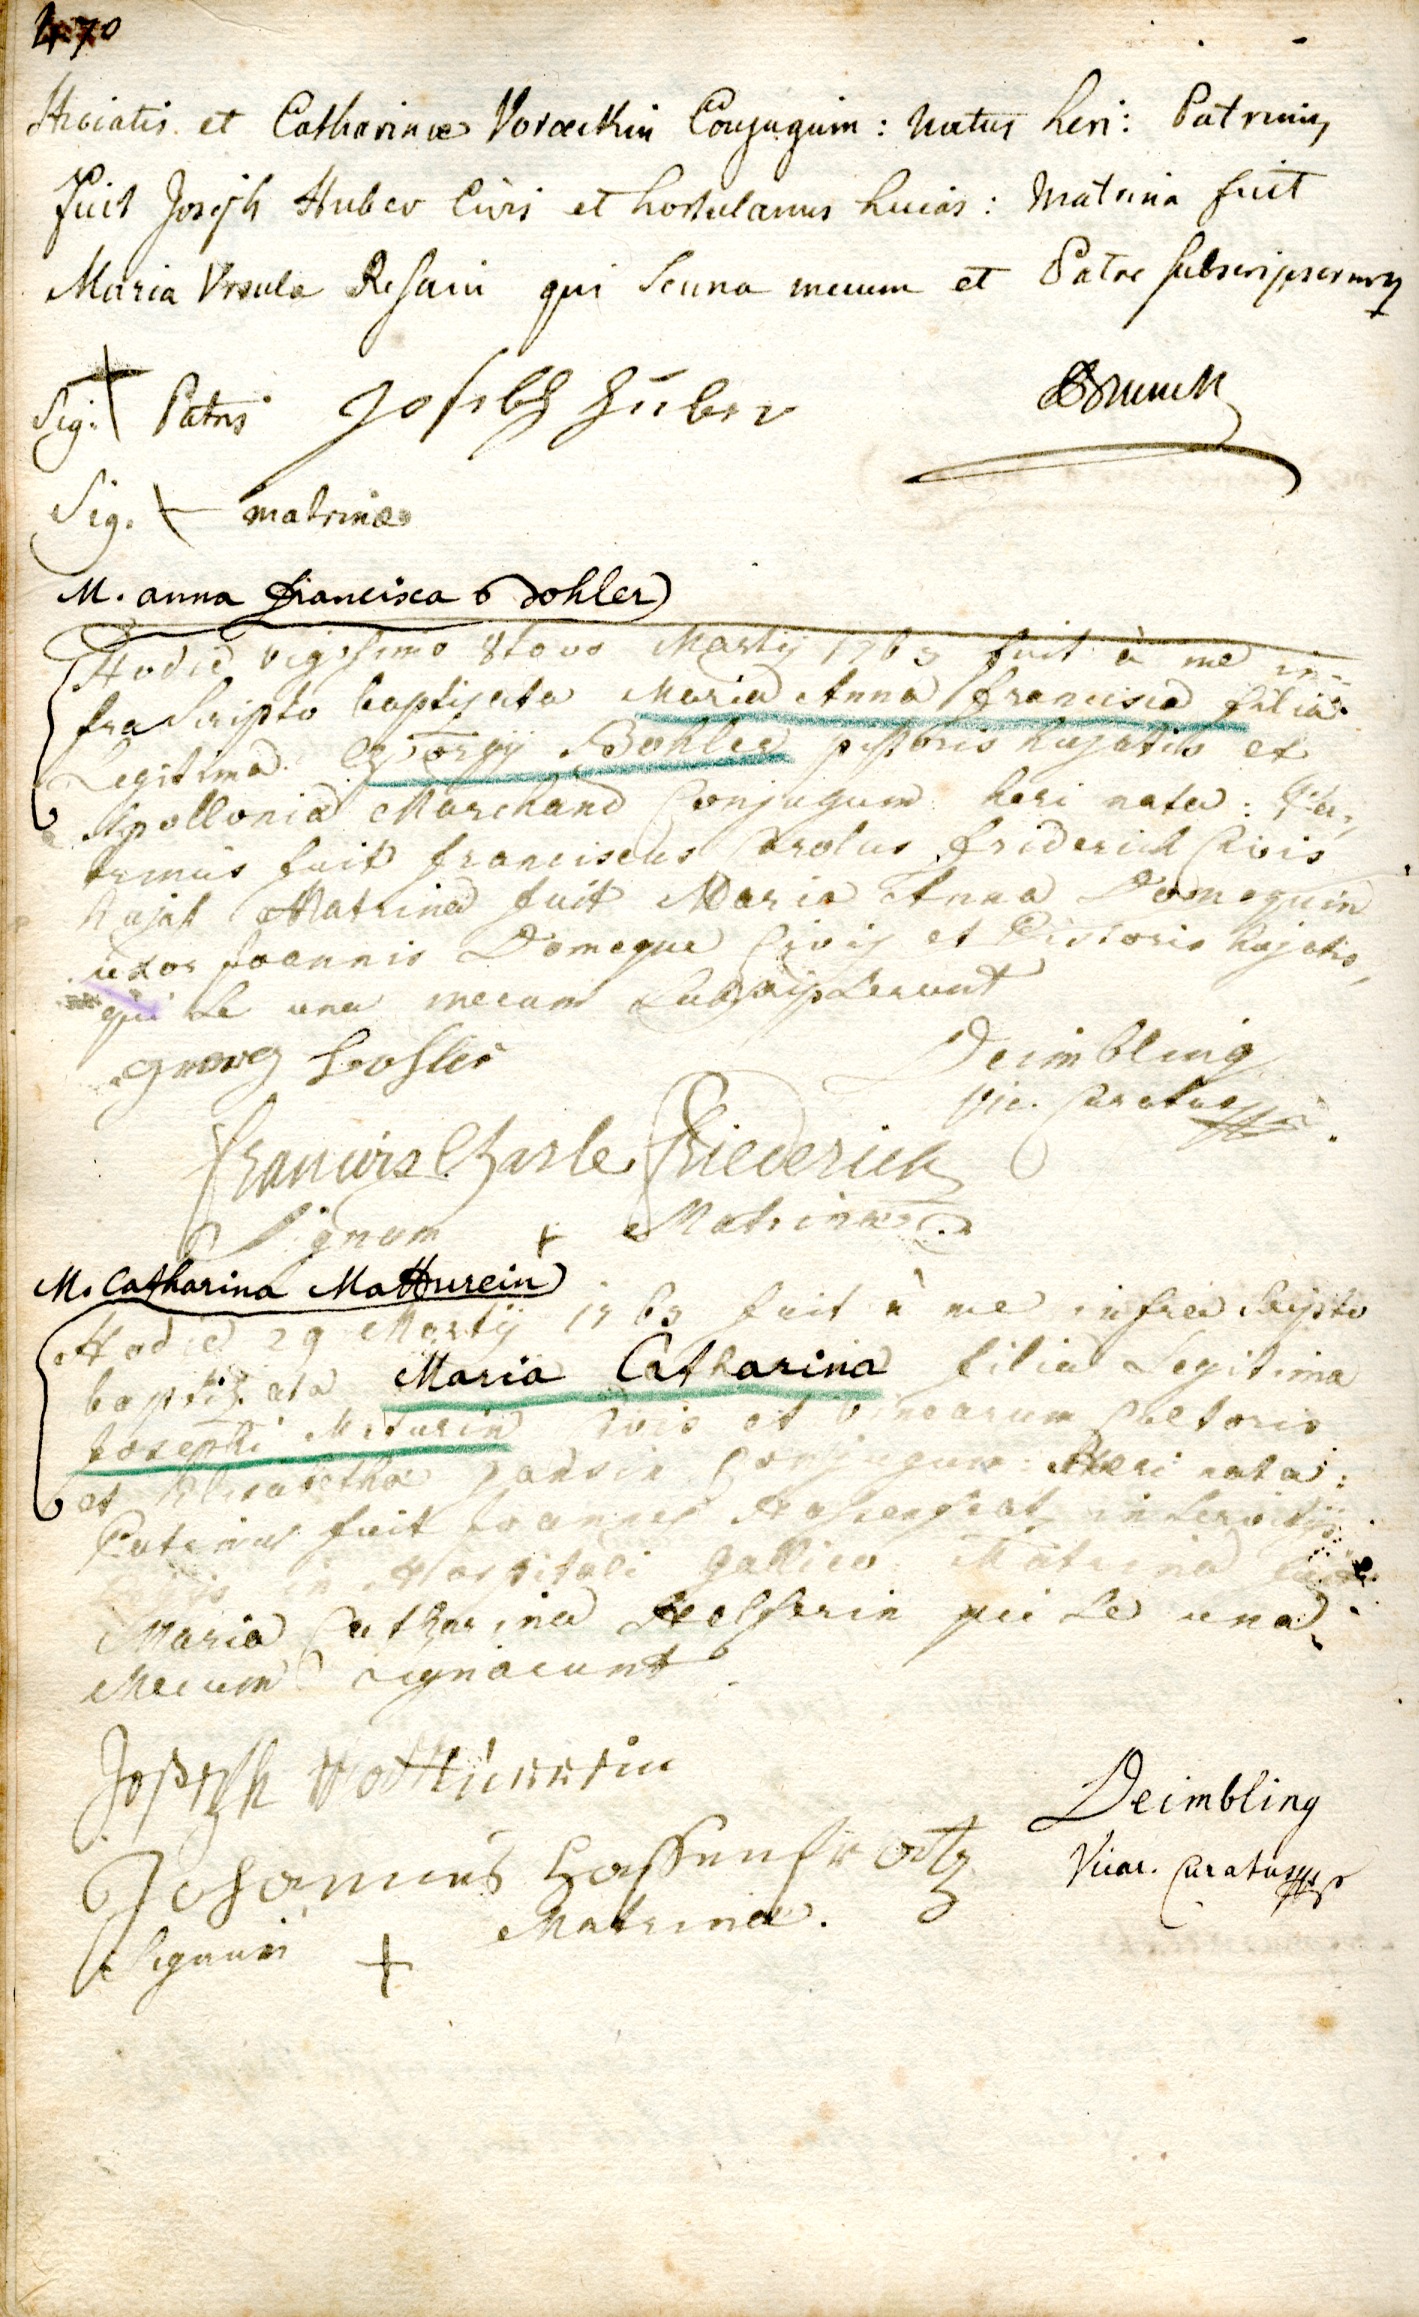 470
et Catharinæ Conjugum: natus heri: Patrinus
fuit Joseph Huber Civis et hortulanus huias: Matrina fuit
Maria Ursula qui se una mecum et Patre subscripserunt
Sig: + Patris Joseph Huber
Sig. + matrinæ
M. anna francisca Bohler
Hodie vigesimo 8tavo Martij 1763 fuit à me in-
fra scripto baptizata Maria Anna francisca filia
Legitima Georgij Bohler pistoris hujatis et
Apollonia Marchand Conjugum heri nata: Pa-
trinus fuit franciscus Carolus friderich Civis
hujat Matrina fuit Maria Anna Domequin
uxor Joannis Domeque Civis et Pistoris hujatis,
qui se una mecum subscripserunt
Georg Bohler
Deimbling
Vic. Curatus
francois Charle Friederich
Signum + Matrinæ
M. Catharina Matthurein
Hodie 29 Martij 1763 fuit à me infra scripto
baptizata Maria Catharina filia Legitima
Josephi Maturin Civis et Vinearum Cultoris
et Elisabetha Conjugum: Heri nata:
Patrinus fuit Joannes
in Hospitali gallico Matrina
Maria Catharina qui se una
Mecum signarunt
Joseph
Deimbling
Vicar. Curatus
Johannes Hassenfratz
Signum + Matrinæ.